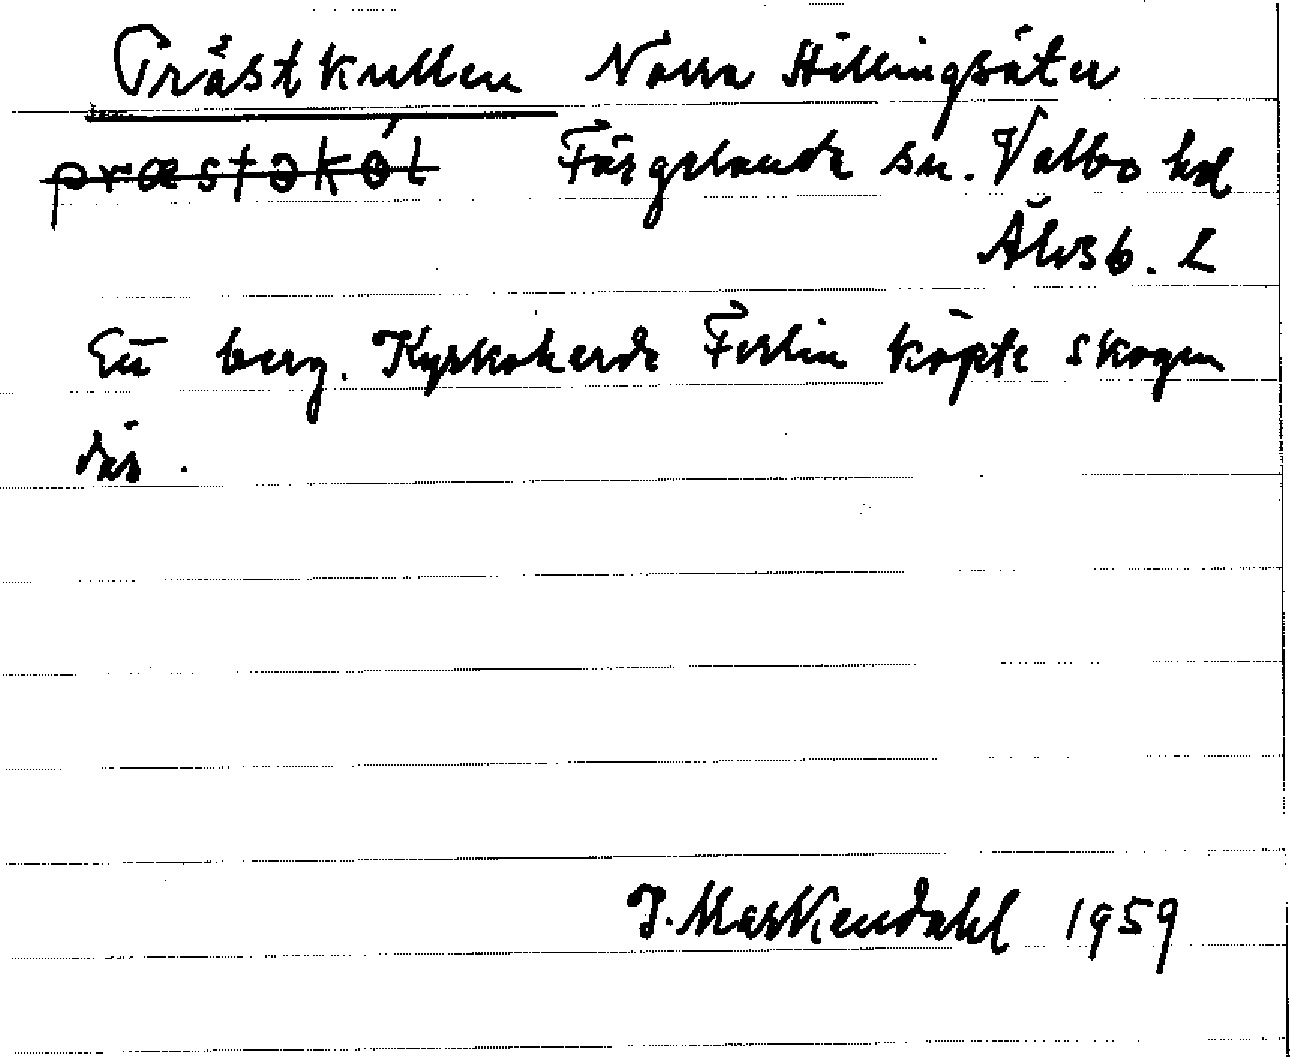 Prästkullen Norra Hillingsäter
præstəkɵ́l Färgelanda sn. Valbo hd
Älvsb. L
Ett berg. Kyrkoherde Ferlin köpte skogen
där.
J. Markendahl 1959